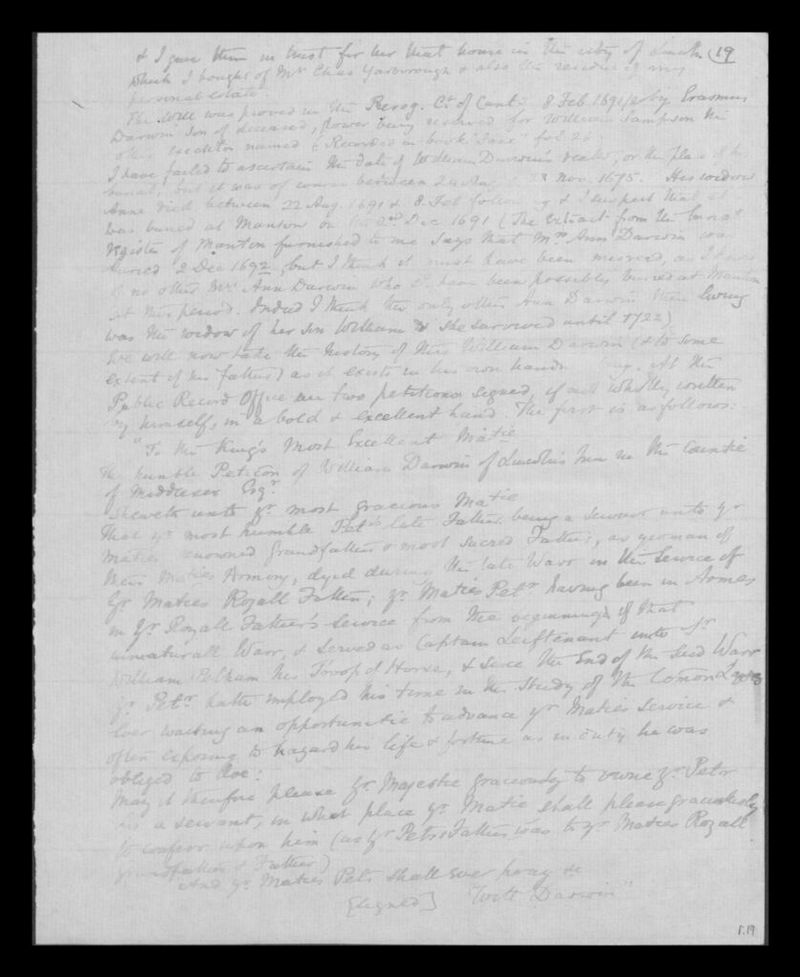 & I give them in trust for her that house in the city of Lincoln (19
which I bought of Mr Chas Yarborough & also the residue of my
personal estate.
The Will was proved in the Prerog. Ct of Cant. 8 Feb. 1691/2 by Erasmus
Darwin son of deceased, power being reserved for William Sampson the
other executor named & Recorded in book " " fol 26
I have failed to ascertain the date of William Darwin's death, or the place of his
burial, but it was of course between Nov. 1675. His widow
Anne died between 22 Aug. 1691 & 8 Feb follow g & I suspect that
was buried at Manton on the 2nd Dec 1691 (The Extract from the burial
register of Manton furnished to me says that Mrs Ann Darwin was
buried 2 Dec 1692, but I think it must have been misread, as I know
of no other Mrs Ann Darwin who cd have been possibly buried at Manton
at this period. Indeed I think the only other Ann Darwin then living
was the widow of her son William & she survived until 1722)
We will now take the history of this William Darwin (& to some
extent of his father) as it exists in his own hand g. At the
Public Record Office are two petitions signed, if not wholly written
by himself, in a bold & excellent hand. The first is as follows:
"To the King's Most Excellent Matie
The humble Peticon of William Darwin of Lincolns Inn in the Countie
of Middlesex Esqr.
Sheweth unto yr most gracious Matie
That yr most humble Petrs late Father being a servant unto yr
Maties renowned Grandfather & most sacred Father, as yeoman of
their Maties Armory, dyed during the late Warr in the Service of
Yr Maties Royall Father; yr Maties Petr having been in Armes
in Yr Royall Father's service from the beginning of that
unnaturall Warr, & served as Captain Leiftenant unto Sr
William Pelham his Troop of Horse, & since the End of the Said Warr
yr Petr hath employed his time in the study of the Comon Laws
ever waiting an opportunitie to advance yr Maties service &
often exposing to hazard his life & fortune as in duty he was
obliged to doe:
May it therefore please yr Majestie graciously to owne yr Petr
as a servant, in what place yr Matie shall please graciously
to conferr upon him (as yr Petrs Father was to yr Maties Royall
grandfather & Father)
And yr Maties Petr shall ever pray &c
[signed] "Will Darwin"
1.19